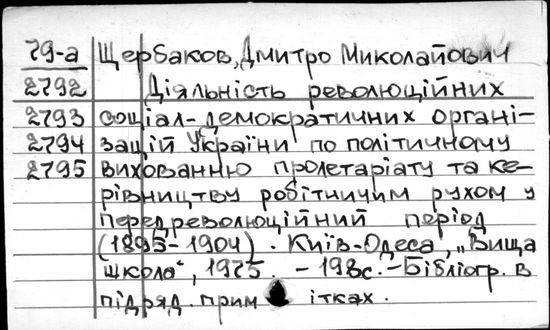 79-а Щербаков, Дмитро Миколайович
2792 Діяльність революційних
2793 соціал-демократичних органі-
2794 зацій України по політичному
2795 вихованню пролетаріату та ке-
рівництву робітничим рухом у
передреволюційний період
(1895-1904). Київ-Одеса, „Вища
школа", 1975. - 198с. - Бібліогр. в
підряд. прим ітках.